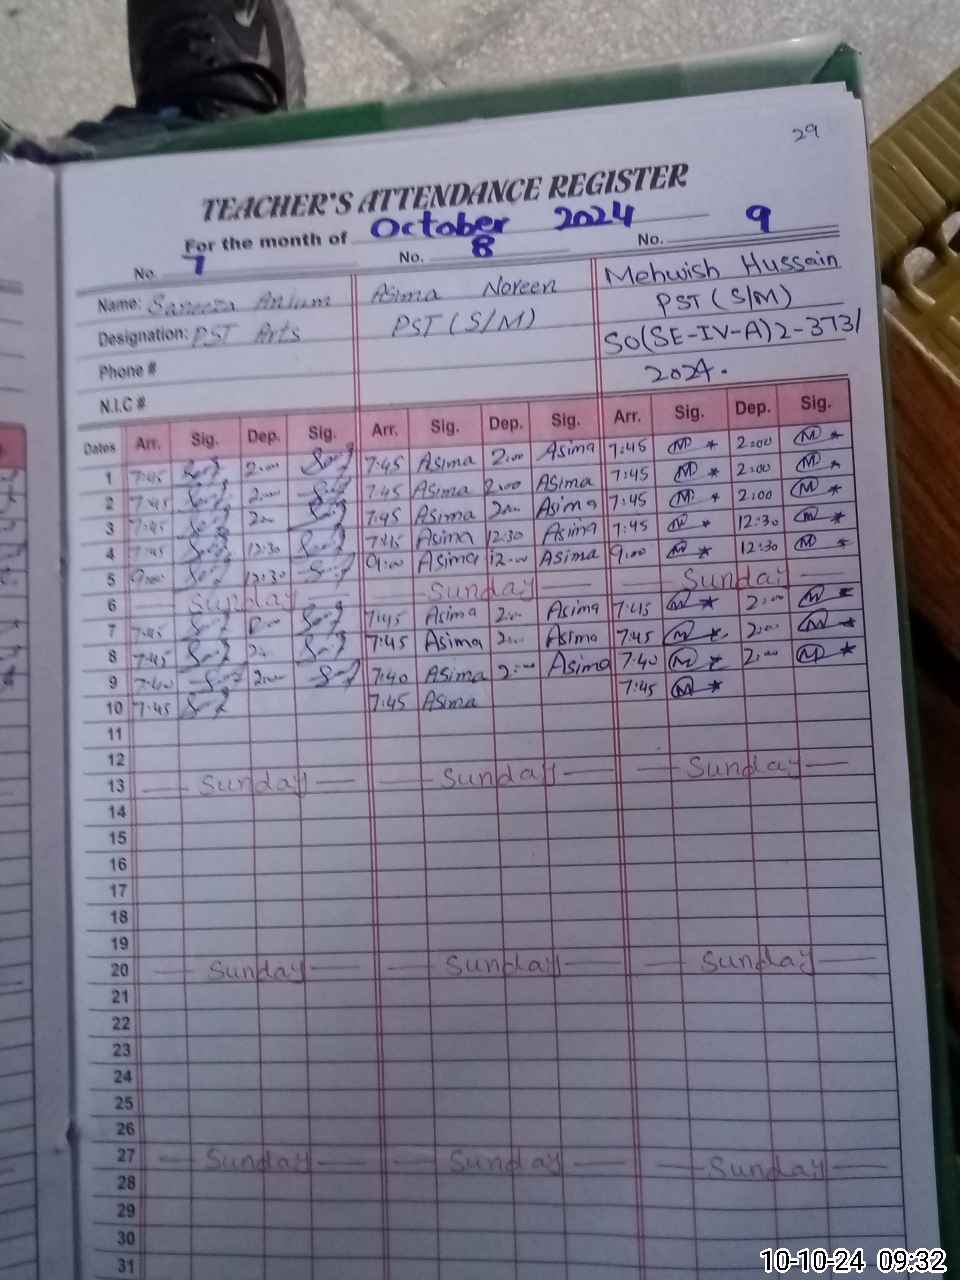 29
TEACHER'S ATTENDANCE REGISTER
For the month of October 2024
No. 7 No. 8 No. 9
Name: Saneeza Anjum Asima Noreen Mehwish Hussain
Designation: PST Arts PST (S/M) PST (S/M)
Phone # SO(SE-IV-A)2-373/
N.I.C # 2024.
Dates Arr. Sig. Dep. Sig. Arr. Sig. Dep. Sig. Arr. Sig. Dep. Sig.
1 7:45 2:00 7:45 Asima 2:00 Asima 7:45 M 2:00 M
2 7:45 2:00 7:45 Asima 2:00 Asima 7:45 M 2:00 M
3 7:45 2:00 7:45 Asima 2:00 Asima 7:45 M 2:00 M
4 7:45 12:30 7:45 Asima 12:30 Asima 7:45 M 12:30 M
5 9:00 12:30 9:00 Asima 12:00 Asima 9:00 M 12:30 M
6 Sunday Sunday Sunday
7 7:45 7:45 Asima 2:00 Asima 7:45 M 2:00 M
8 7:45 2:00 7:45 Asima 2:00 Asima 7:45 M 2:00 M
9 7:40 2:00 7:40 Asima 2:00 Asima 7:40 M 2:00 M
10 7:45 7:45 Asima 7:45 M
11
12
13 Sunday Sunday Sunday
14
15
16
17
18
19
20 Sunday Sunday Sunday
21
22
23
24
25
26
27 Sunday Sunday Sunday
28
29
30
31
10-10-24 09:32